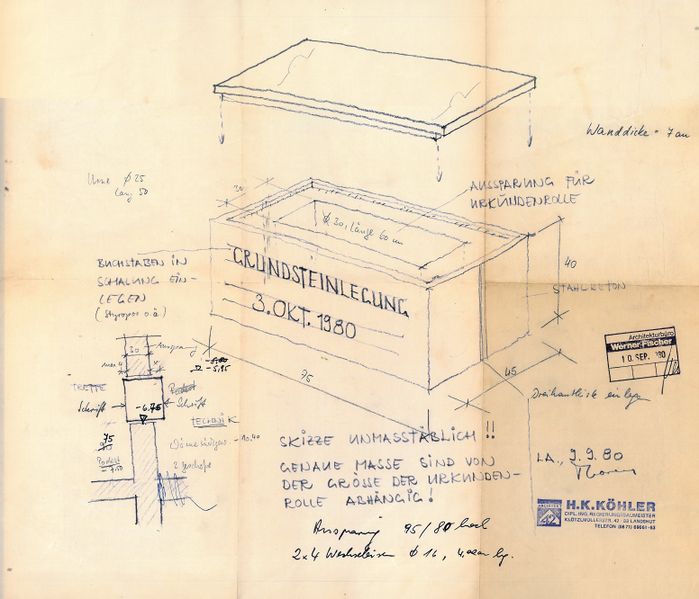 Wanddicke = 7 cm
Urne Ø 25
Lang. 50
20
AUSSPARUNG FÜR
URKUNDENROLLE
Ø 30, Länge 60 cm
BUCHSTABEN IN
SCHALUNG EIN-
LEGEN
(Styropor o.ä)
GRUNDSTEINLEGUNG
3. OKT. 1980
40
STAHLBETON
45
95
Architekturbüro
Werner Fischer
10. SEP. 80
30
Aussparung
-5,95
TREPPE
Podest
Schrift
-6.75
Schrift
TECHNIK
75
Podest
-10.40
2. geschoße
Dreikantleiste einlegen
SKIZZE UNMASSTÄBLICH !!
GENAUE MASSE SIND VON
DER GRÖSSE DER URKUNDEN-
ROLLE ABHÄNGIG!
LA., 9.9.80
Aussparung 95/80 hoch
2x4 Wechseleisen Ø 16, lg.
H.K.KÖHLER
DIPL. ING. REGIERUNGSBAUMEISTER
KLÖTZLMÜLLERSTR. 42 · 83 LANDSHUT
TELEFON (0871)